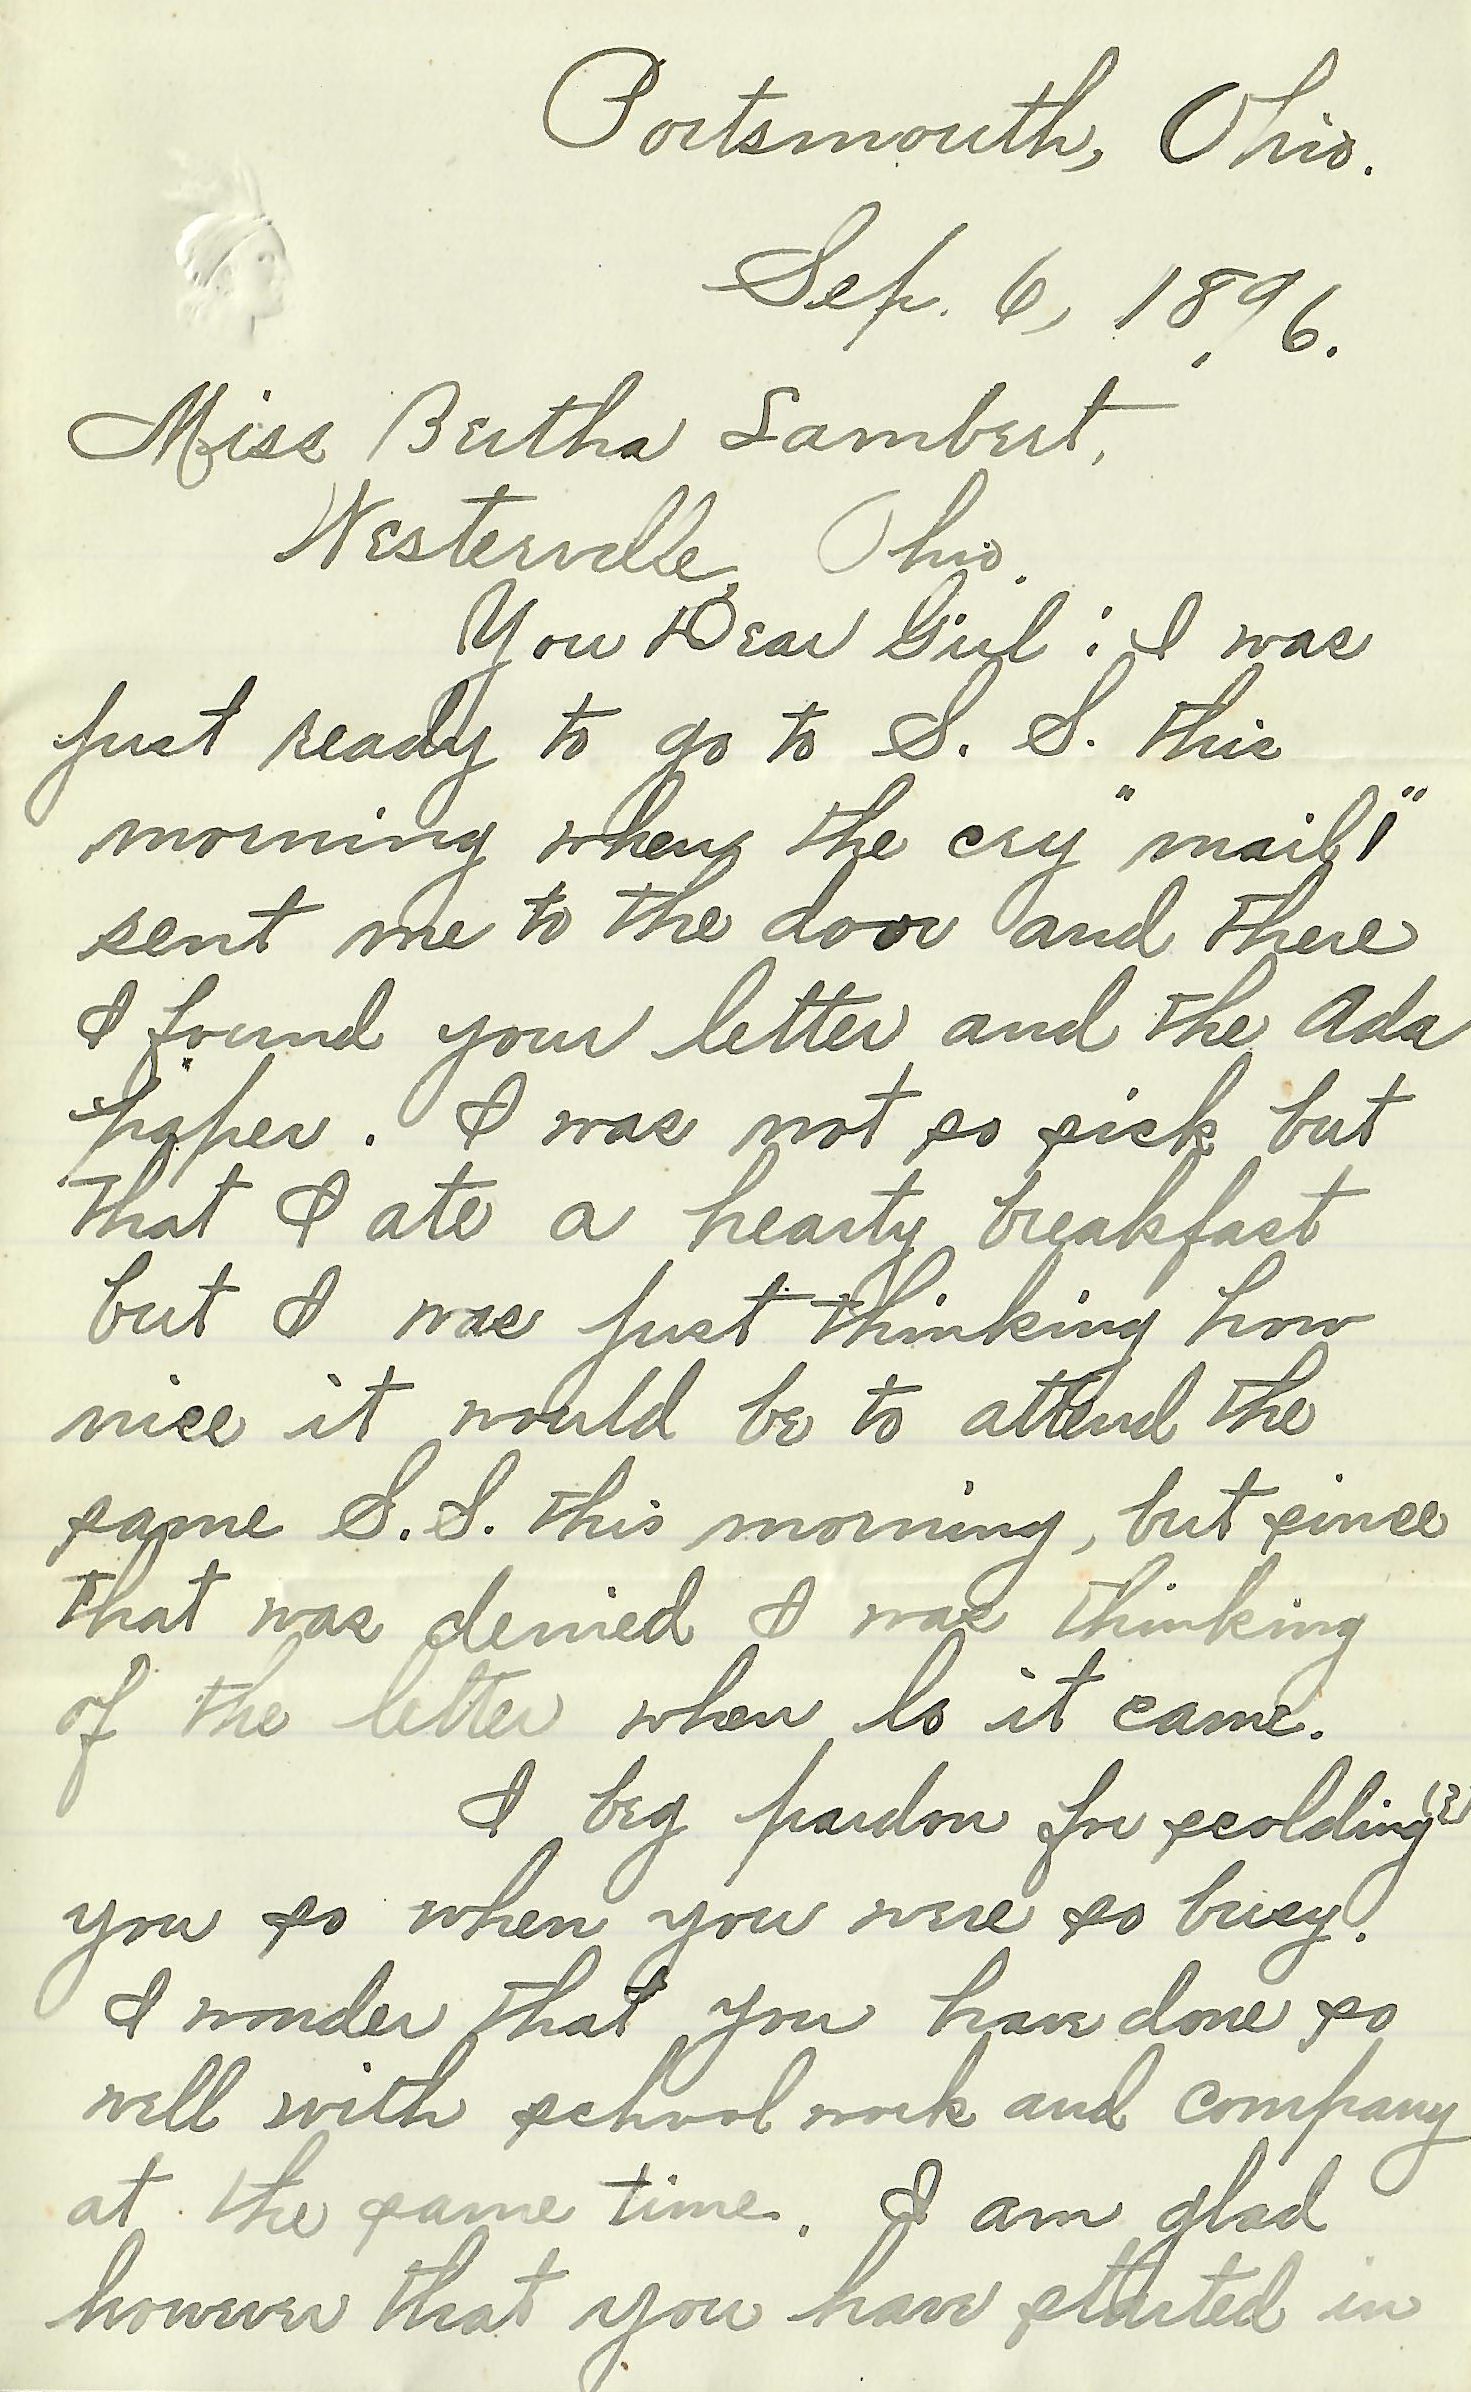 Portsmouth, Ohio.
Sep. 6, 1896.
Miss Bertha Lambert,
Westerville, Ohio.
You Dear Girl: I was
just ready to go to S. S. this
morning when the cry "mail!"
sent me to the door and there
I found your letter and the Ada
paper. I was not so sick but
that I ate a hearty breakfast
but I was just thinking how
nice it would be to attend the
same S.S. this morning, but since
that was denied I was thinking
of the letter when lo it came.
I beg pardon for scolding (?)
you so when you were so busy.
I wonder that you have done so
well with school work and company
at the same time. I am glad
however that you have started in